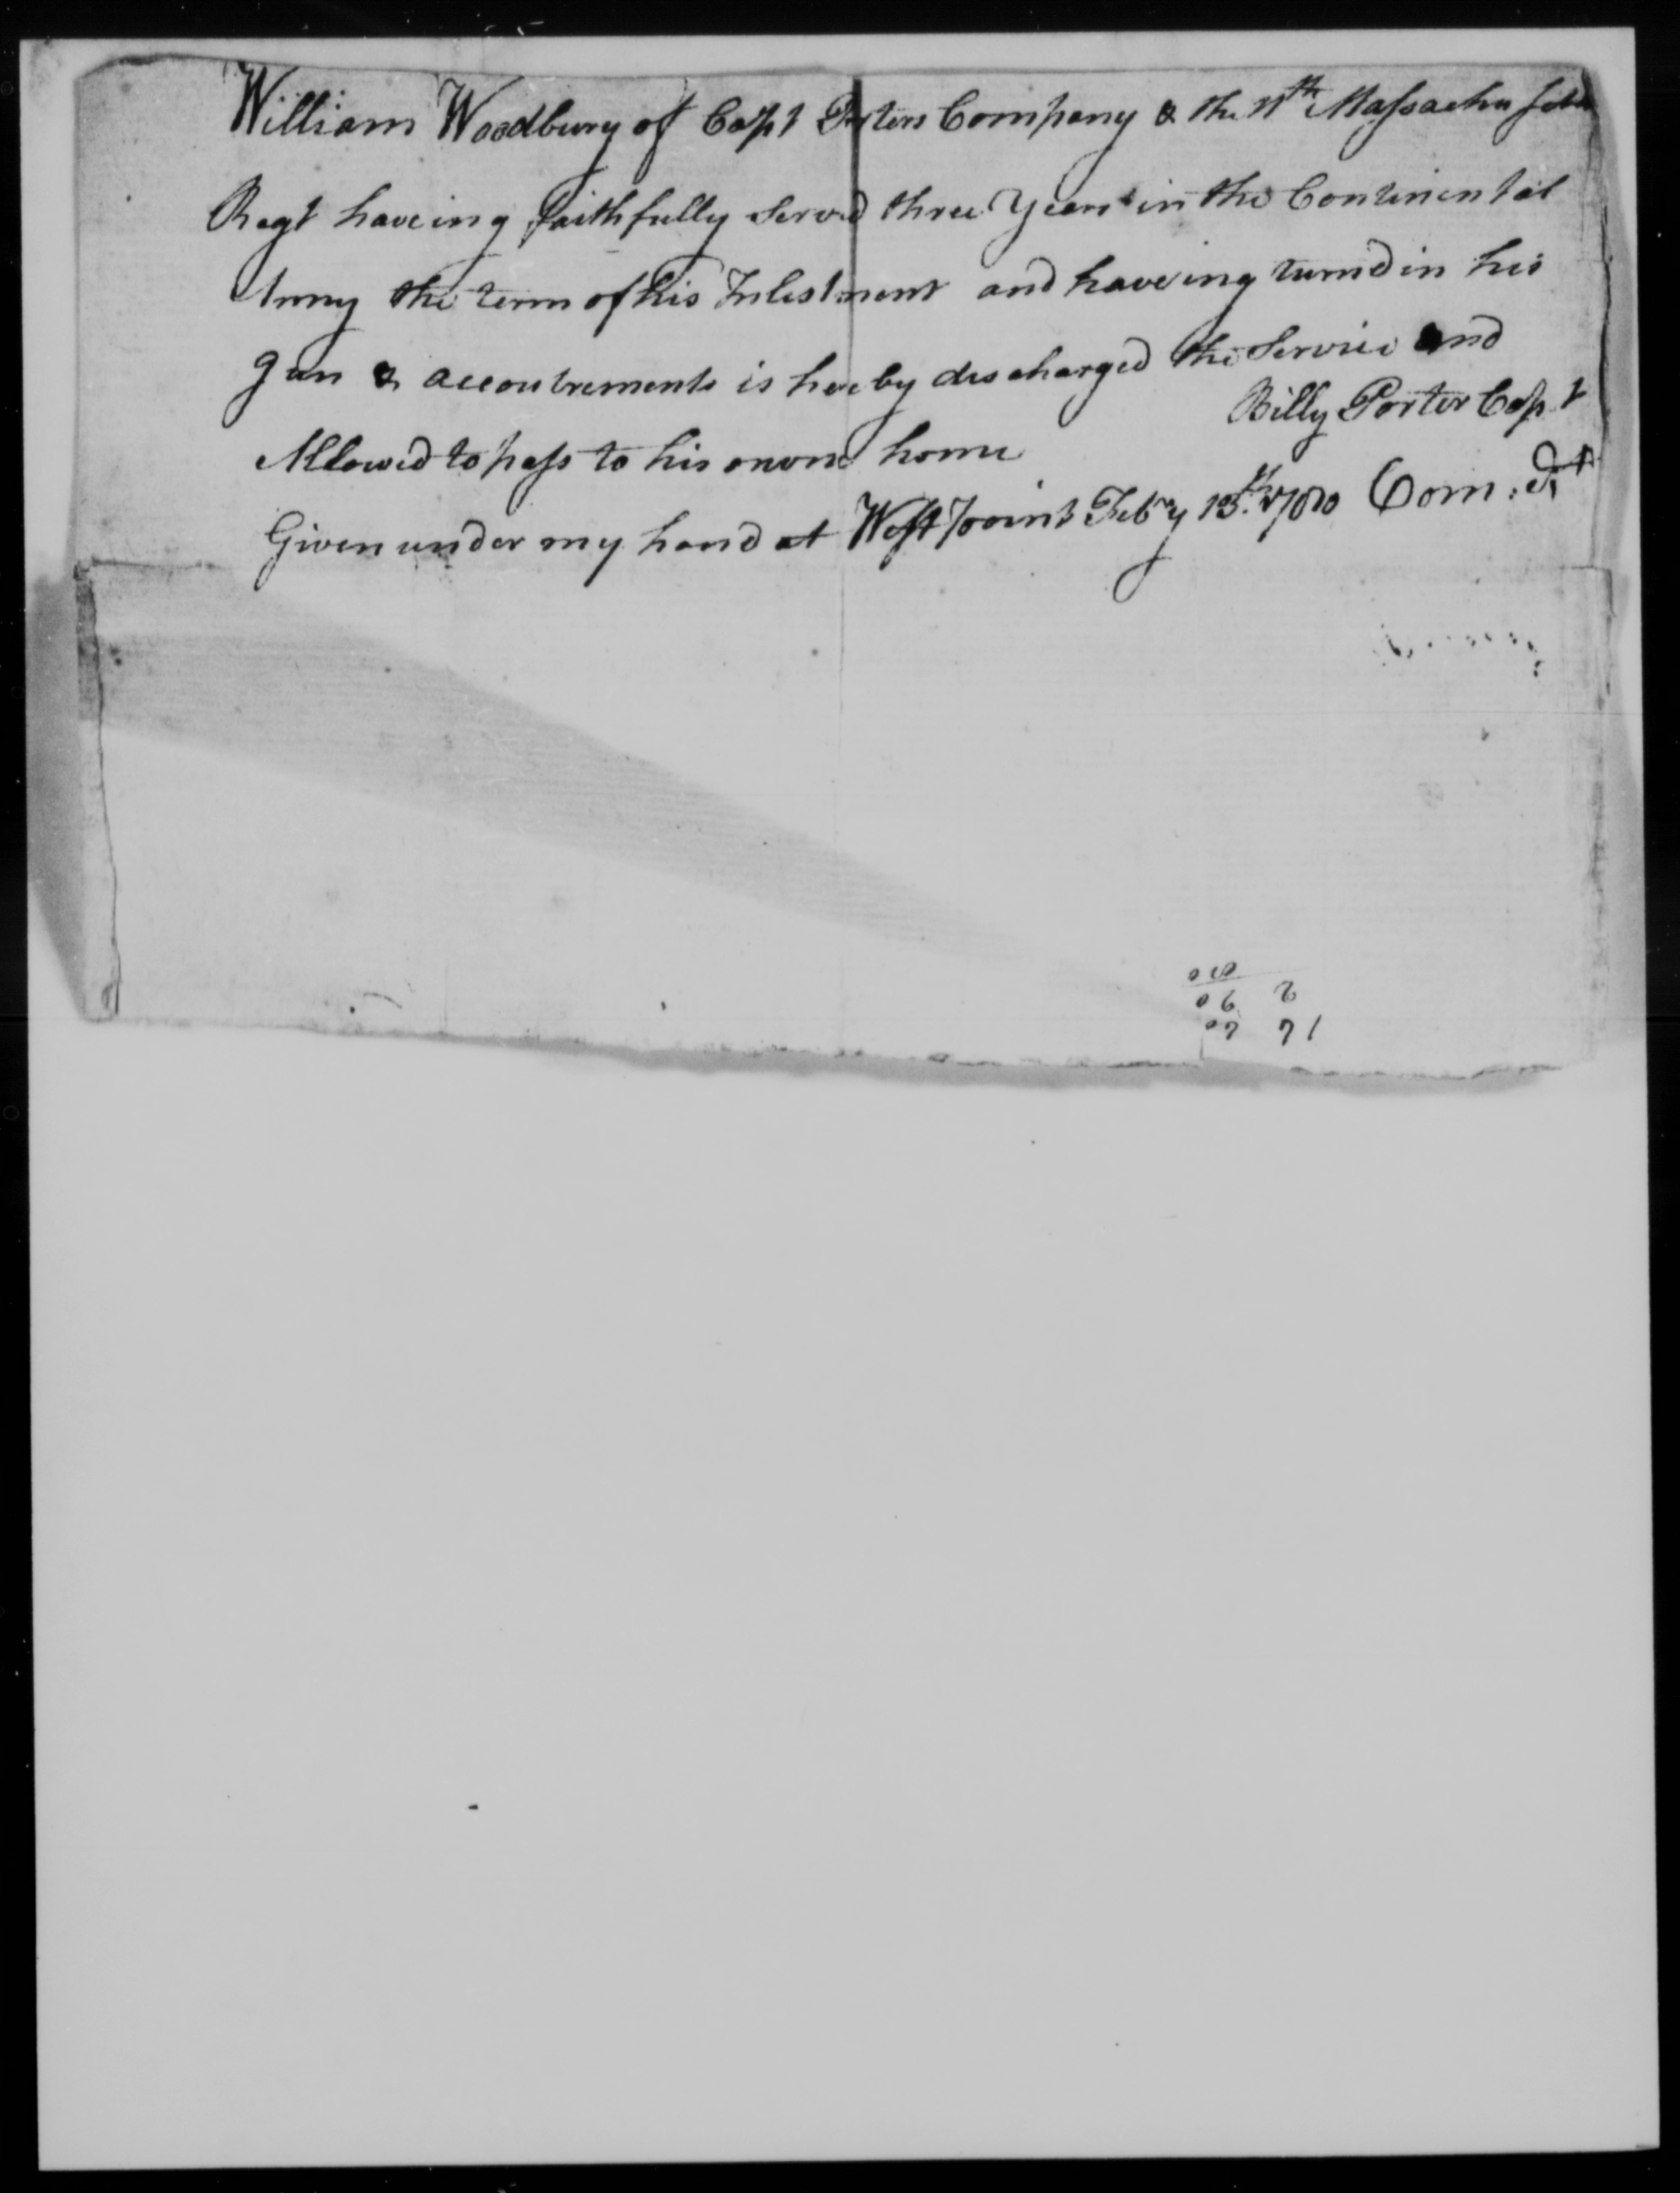 William Woodbury of Capt Porters Company & the 11th Massachusetts
Regt haveing faithfully Served three Years in the Continental
Army the term of his Inlestment and haveing turnd in his
gun & accoutrements is hereby discharged the Service and
Allowed to pass to his owne home
Billy Porter Capt
Given under my hand at West point Febry 13th 1780 Com: dt
17 70
2 90